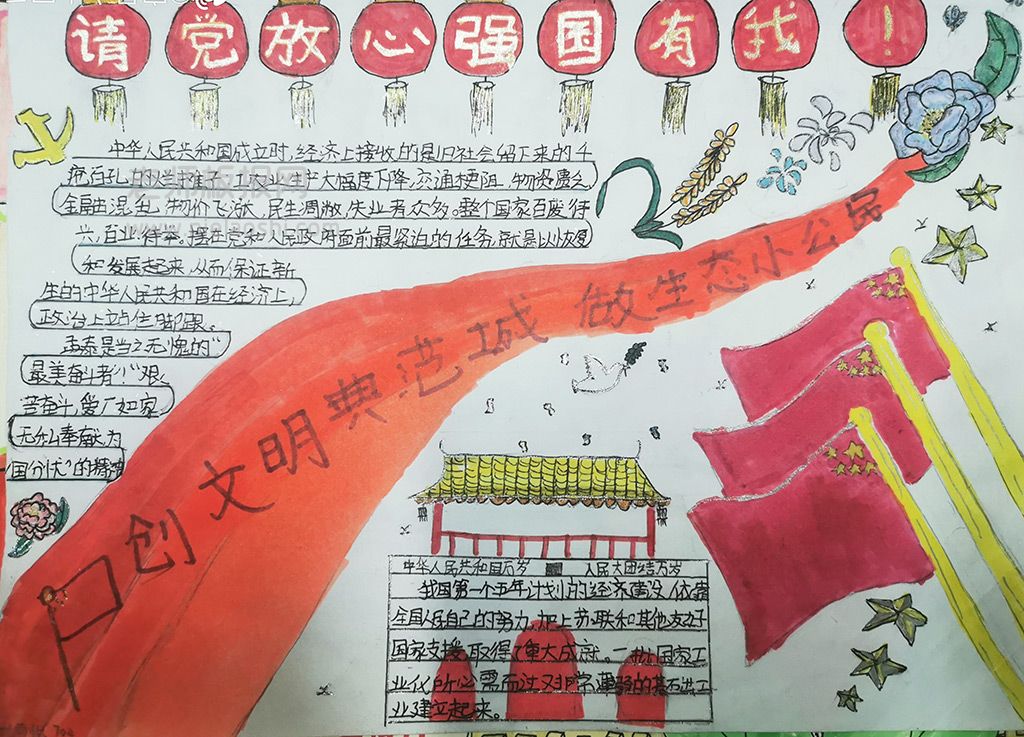 请党放心强国有我！
中华人民共和国成立时,经济上接收的是旧社会留下来的千
疮百孔的烂摊子,工农业生产大幅度下降,交通梗阻,物资匮乏,
金融混乱,物价飞涨,民生凋敝,失业者众多。整个国家百废待
兴,百业待举。摆在党和人民政府面前最紧迫的任务,就是以恢复
和发展起来,从而保证新
生的中华人民共和国在经济上,
政治上立占住脚跟。
孟泰是当之无愧的“
最美奋斗者”!“艰
苦奋斗,爱厂如家,
无私奉献,为
国分忧”的精神
创文明典范城 做生态小公民
中华人民共和国万岁 人民大团结万岁
我国第一个五年计划的经济建设,依靠
全国人民自己的努力,加上苏联和其他友好
国家支援,取得了重大成就。一批国家工
业化所必需而过去非常薄弱的基石出工
业建立起来。